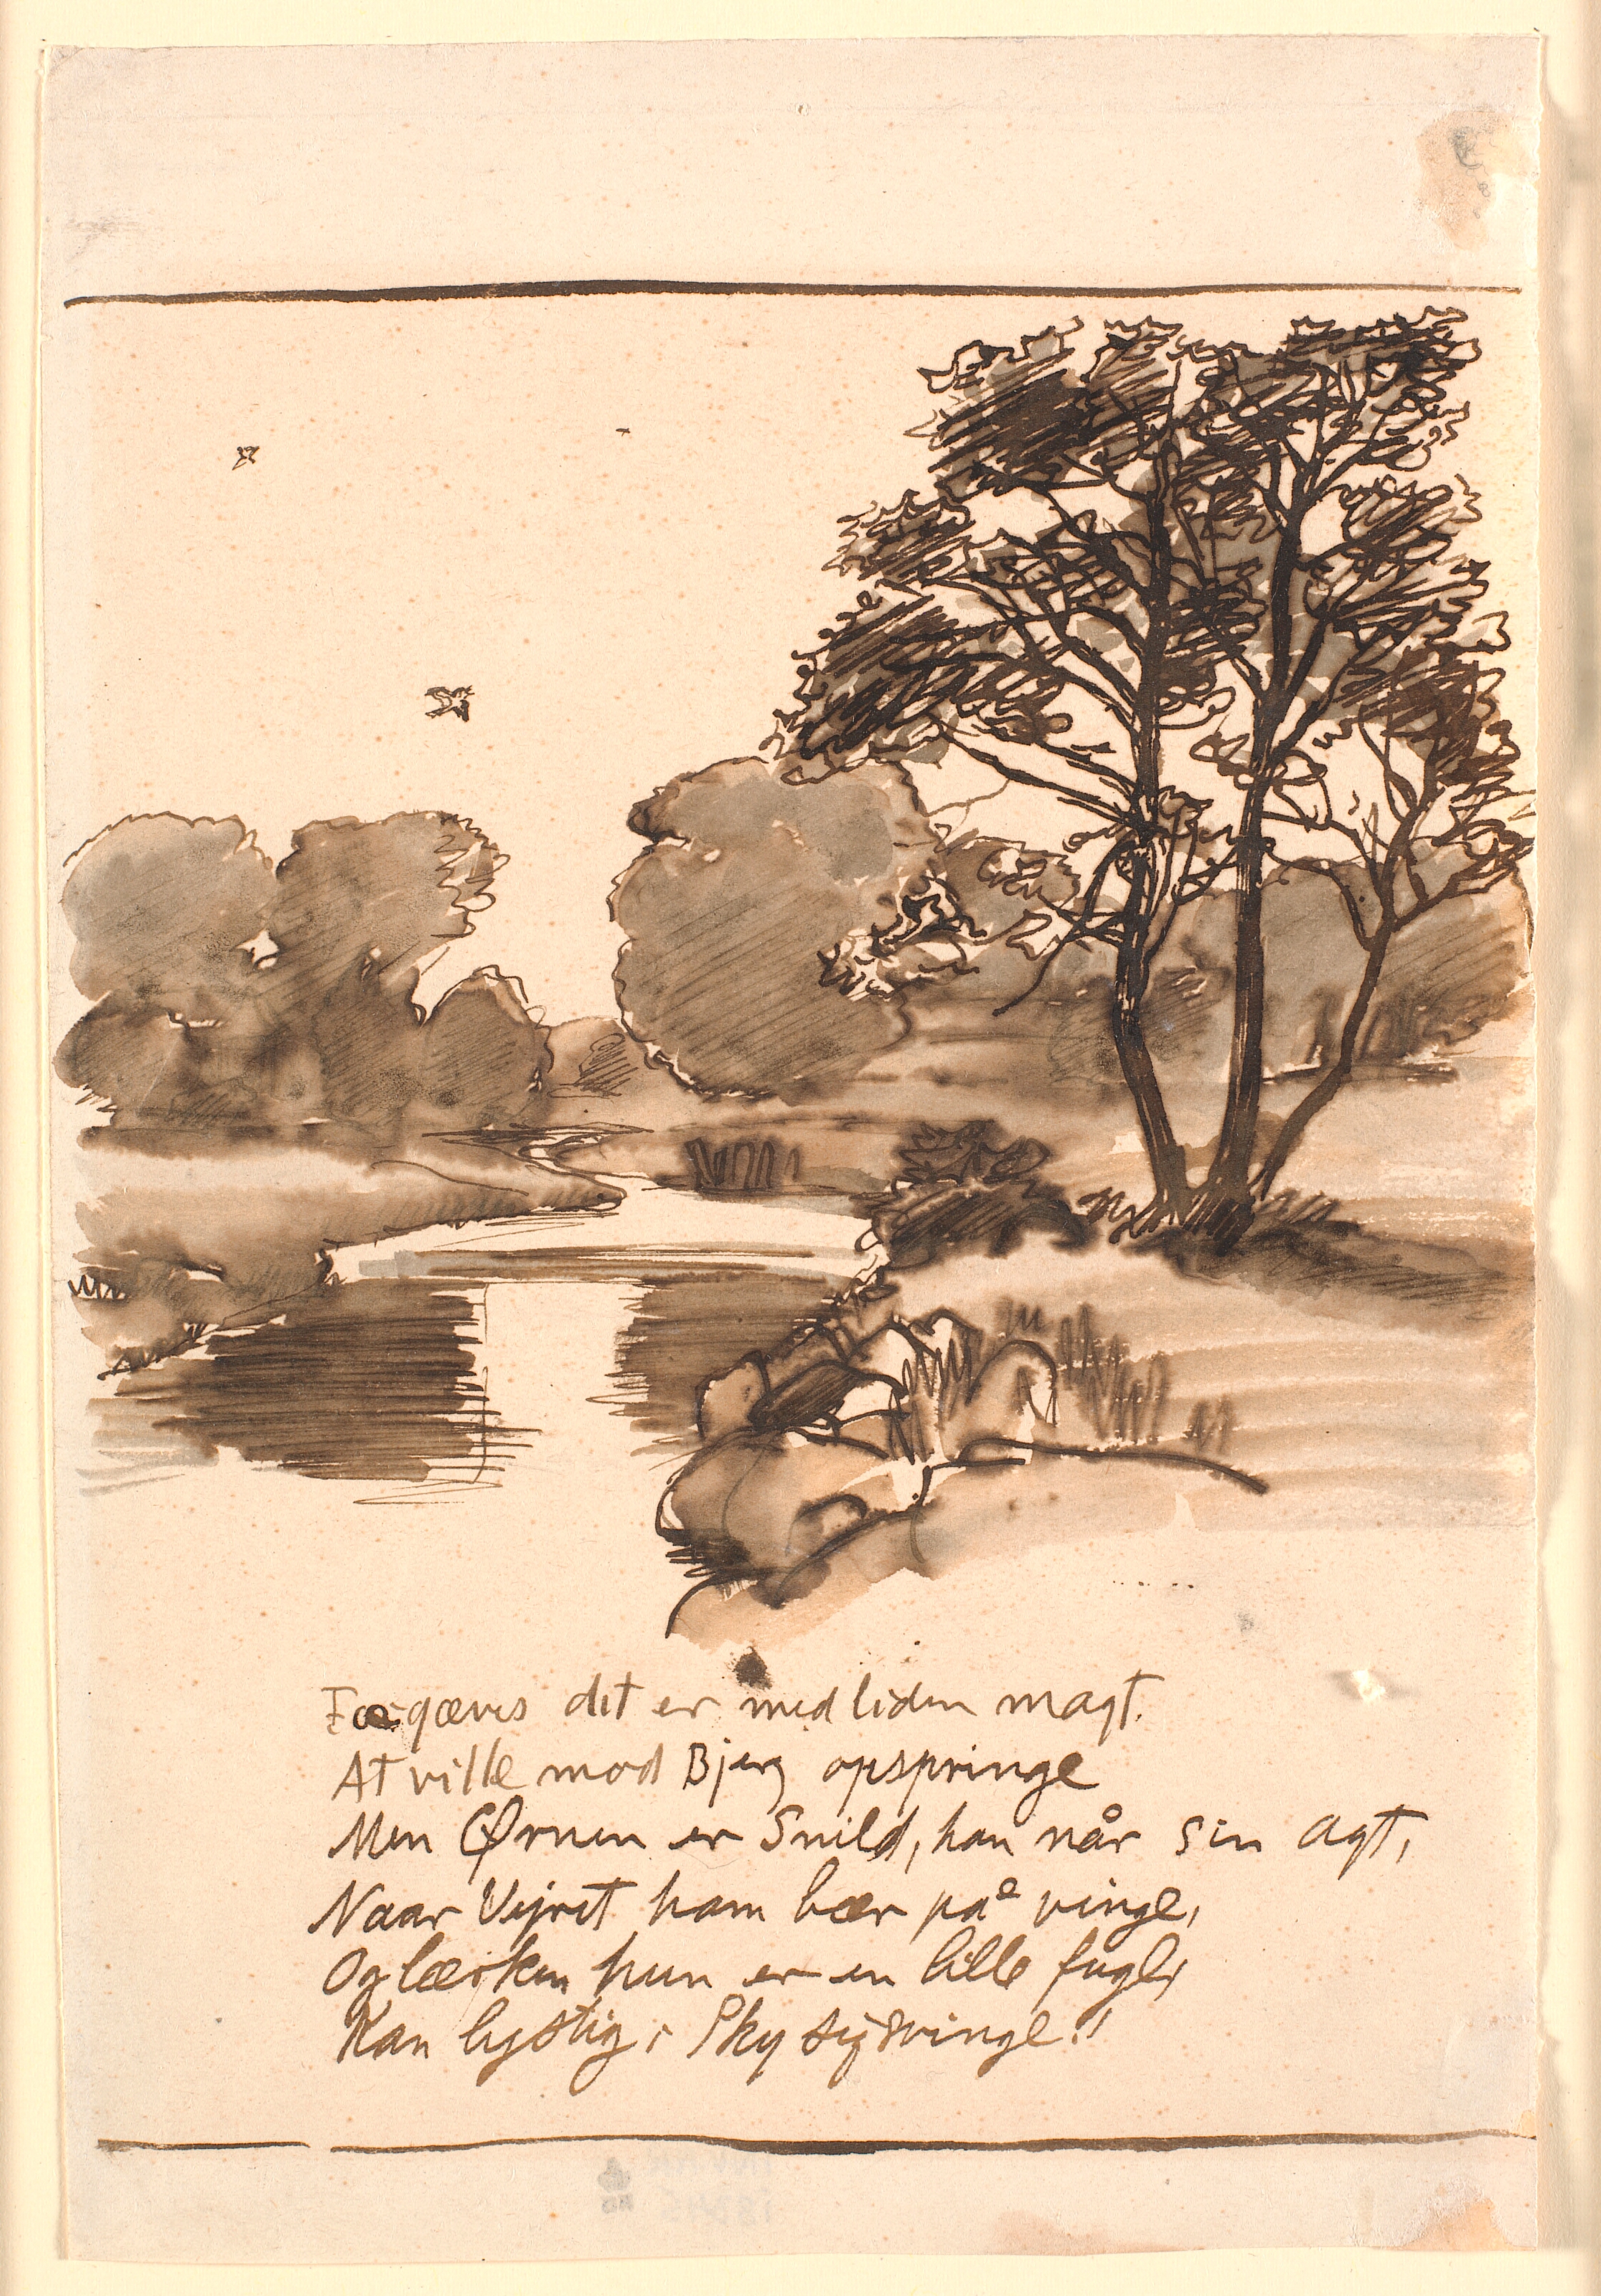 Forgæves det er med liden magt.
At ville mod Bjerg opspringe
Men Ørnen er Snild, han når sin Agt,
Naar Vejret ham bær på vinge,
Og lærken hun er en lille fugl,
Kan lystig i Sky sig svinge!!